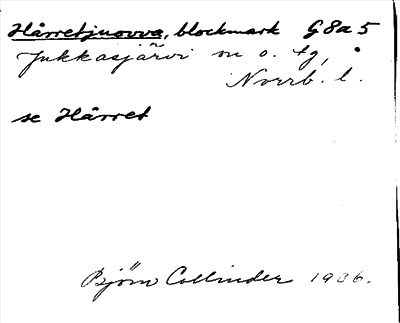 Hårretjuovva, blockmark G 8a 5
Jukkasjärvi sn o. tg,
Norrb. l.
se Hårret
Björn Collinder 1936.